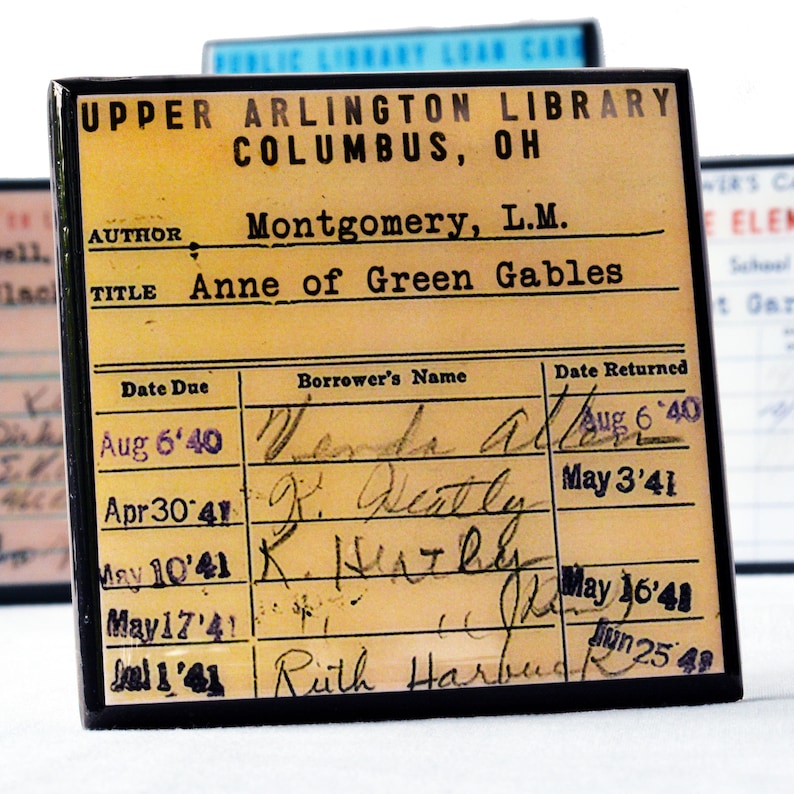 PUBLIC LIBRARY LOAN CARD
UPPER ARLINGTON LIBRARY
COLUMBUS, OH
AUTHOR Montgomery, L.M.
TITLE Anne of Green Gables
Date Due Borrower's Name Date Returned
Aug 6 '40 Venda Allen Aug 6 '40
Apr 30 '41 K. Heatly May 3 '41
May 10 '41 K. Heatly
May 17 '41 " " May 16 '41
Jul 1 '41 Ruth Harbuck Jun 25 '41
School